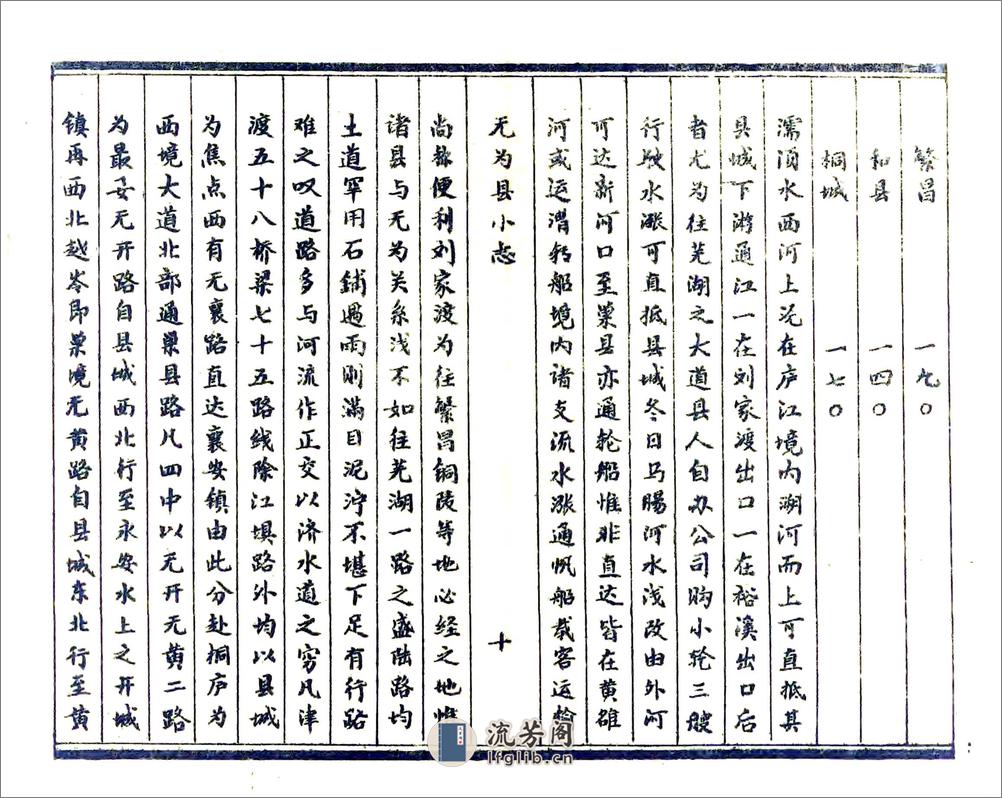 繁昌 一九〇
和县 一四〇
桐城 一七〇
濡须水西河上况在庐江境内溯河而上可直抵其
县城下游通江一在刘家渡出口一在裕溪出口后
者尤为往芜湖之大道县人自办公司购小轮三艘
行驶水涨可直抵县城冬日马肠河水浅改由外河
可达新河口至巢县亦通轮船惟非直达皆在黄雒
河或运漕转船境内诸支流水涨通帆船载客运输
无为县小志 十
尚称便利刘家渡为往繁昌铜陵等地必经之地惟
诸县与无为关系浅不如往芜湖一路之盛陆路均
土道罕用石铺遇雨则满目泥泞不堪下足有行路
难之叹道路多与河流作正交以济水道之穷凡津
渡五十八桥梁七十五路线除江埧路外均以县城
为焦点西有无襄路直达襄安镇由此分赴桐庐为
西境大道北部通巢县路凡四中以无开无黄二路
为最妥无开路自县城西北行至永安水上之开城
镇再西北越岺即巢境无黄路自县城东北行至黄
流芳阁
lfglib.cn